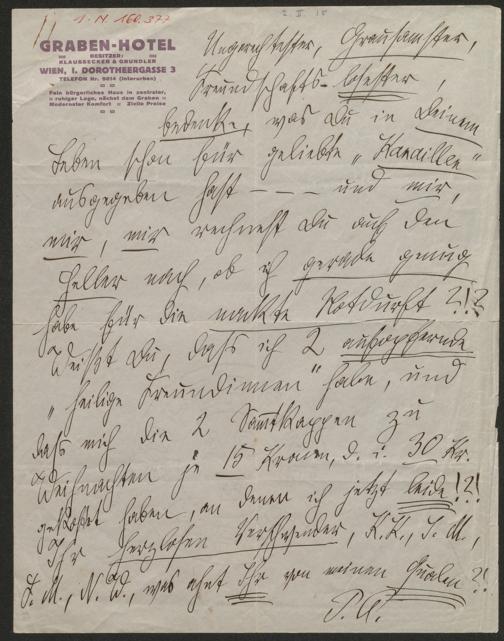 I. N. 160.377
2. II. 18
GRABEN-HOTEL
BESITZER:
KLAUSECKER & GRUNDLER
WIEN, I. DOROTHEERGASSE 3
TELEFON Nr. 9814 (Interurban)
Fein bürgerliches Haus in zentraler,
ruhiger Lage, nächst dem Graben
Modernster Komfort Zivile Preise
Ungerechtester, Grausamster,
Freundschafts-losester,
bedenke, was Du in Deinem
Leben schon für geliebte „Kanaillen"
ausgegeben hast — — — und mir,
mir, mir rechnest Du auf den
Heller nach, ob ich gerade genug
habe für die nackte Notdurft?!?
Weißt Du, dass ich 2 aufopfernde
„heilige Freundinnen" habe, und
dass mich die 2 Samtkappen zu
Weihnachten je 15 Kronen, d. i. 30 Kr.
gekostet haben, an denen ich jetzt leide!?!
Ihr herzlosen Verschwender, K.K., T. M.,
F. M., N. W., was ahnt Ihr von meinen Qualen?!
P. A.